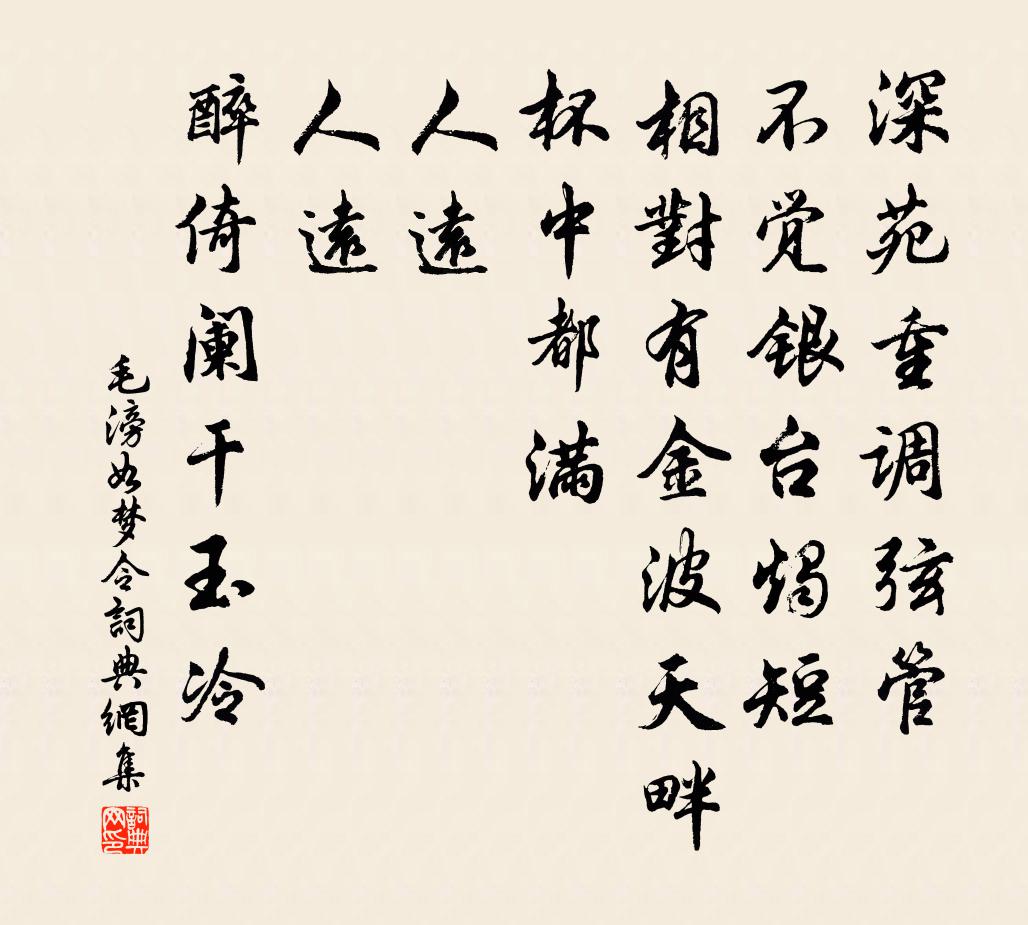 深苑重调弦管
不觉银台烛短
相對有金波天畔
杯中都满
人遠
人遠
醉倚阑干玉冷
毛滂如梦令詞典網集
詞典网印